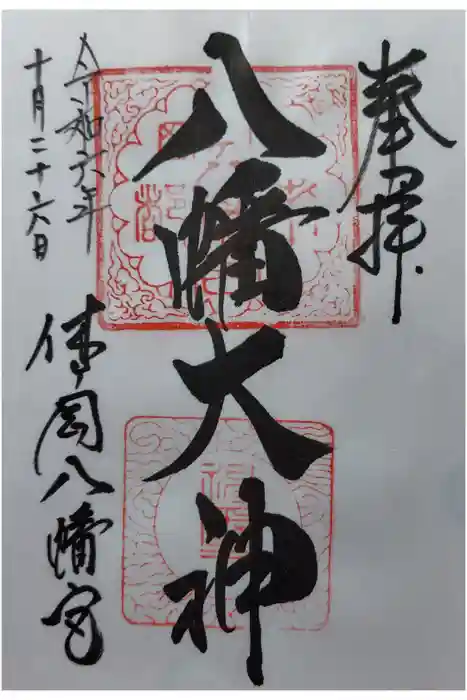 奉拝
八幡大神
令和六年
十月二十六日
休岡八幡宮